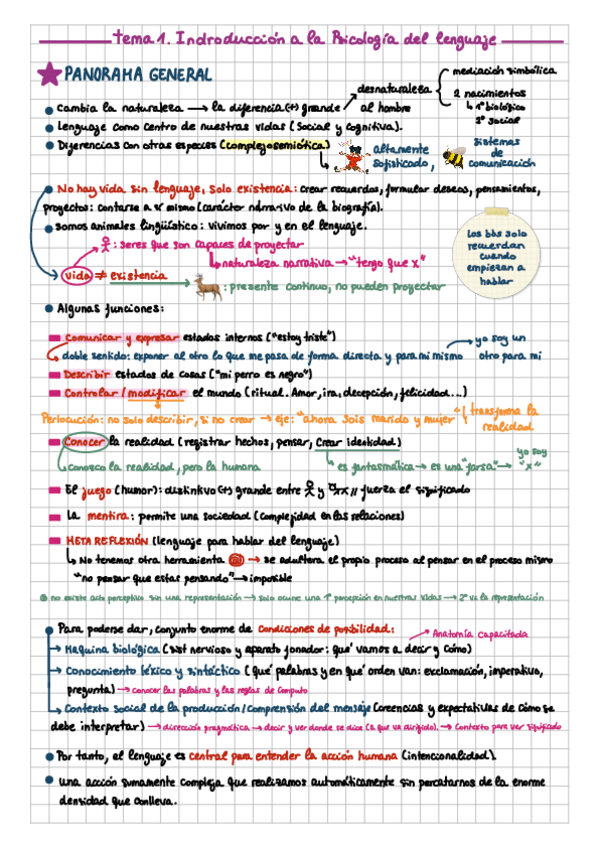 tema 1. Indroducción a la Psicología del lenguaje
PANORAMA GENERAL
mediación simbólica
desnaturaleza
2 nacimientos
↳ 1º biológico
2º social
Cambia la naturaleza → la diferencia (+) grande al hombre
Lenguaje como centro de nuestras vidas (social y cognitiva).
Diferencias con otras especies (complejo semiótica)
altamente sofisticado,
sistemas de comunicación
No hay vida sin lenguaje, solo existencia: crear recuerdos, formular deseos, pensamientos,
proyectos: contarse a sí mismo (carácter narrativo de la biografía).
Somos animales lingüísticos: vivimos por y en el lenguaje.
: seres que son capaces de proyectar
↳ naturaleza narrativa → "tengo que x"
Vida ≠ existencia
: presente continuo, no pueden proyectar
Los bbs solo
recuerdan
cuando
empiezan a
hablar
Algunas funciones:
Comunicar y expresar estados internos ("estoy triste")
→ yo soy un otro para mi
doble sentido: exponer al otro lo que me pasa de forma directa y para mi mismo
Describir estados de casas ("mi perro es negro")
Controlar / modificar el mundo (ritual. Amor, ira, decepción, felicidad...)
Perlocución: no solo describir, si no crear → eje: "ahora sois marido y mujer"
transforma la realidad
Conocer la realidad (registrar hechos, pensar, crear identidad)
conozco la realidad, pero la humana
↳ es fantasmática → es una "farsa" → yo soy "x"
El juego (humor): distintivo (+) grande entre y // fuerza el significado
La mentira: permite una sociedad (complejidad en las relaciones)
META REFLEXIÓN (lenguaje para hablar del lenguaje)
↳ No tenemos otra herramienta → se adultera el propio proceso al pensar en el proceso mismo
"no pensar que estas pensando" → imposible
no existe acto perceptivo sin una representación → solo ocurre una 1ª percepción en nuestras vidas → 2º va la representación
Para poderse dar, conjunto enorme de condiciones de posibilidad:
Anatomía capacitada
→ Maquina biológica (sist nervioso y aparato fonador: qué vamos a decir y cómo)
→ Conocimiento léxico y sintáctico (qué palabras y en qué orden van: exclamación, imperativo,
pregunta) → conocer las palabras y las reglas de computo
↳ Contexto social de la producción/comprensión del mensaje (creencias y expectativas de cómo se
debe interpretar) → dirección pragmática → decir y ver donde se dice (a que va dirigido). → Contexto para ver significado
Por tanto, el lenguaje es central para entender la acción humana (intencionalidad).
una acción sumamente compleja que realizamos automáticamente sin percatarnos de la enorme
densidad que conlleva.